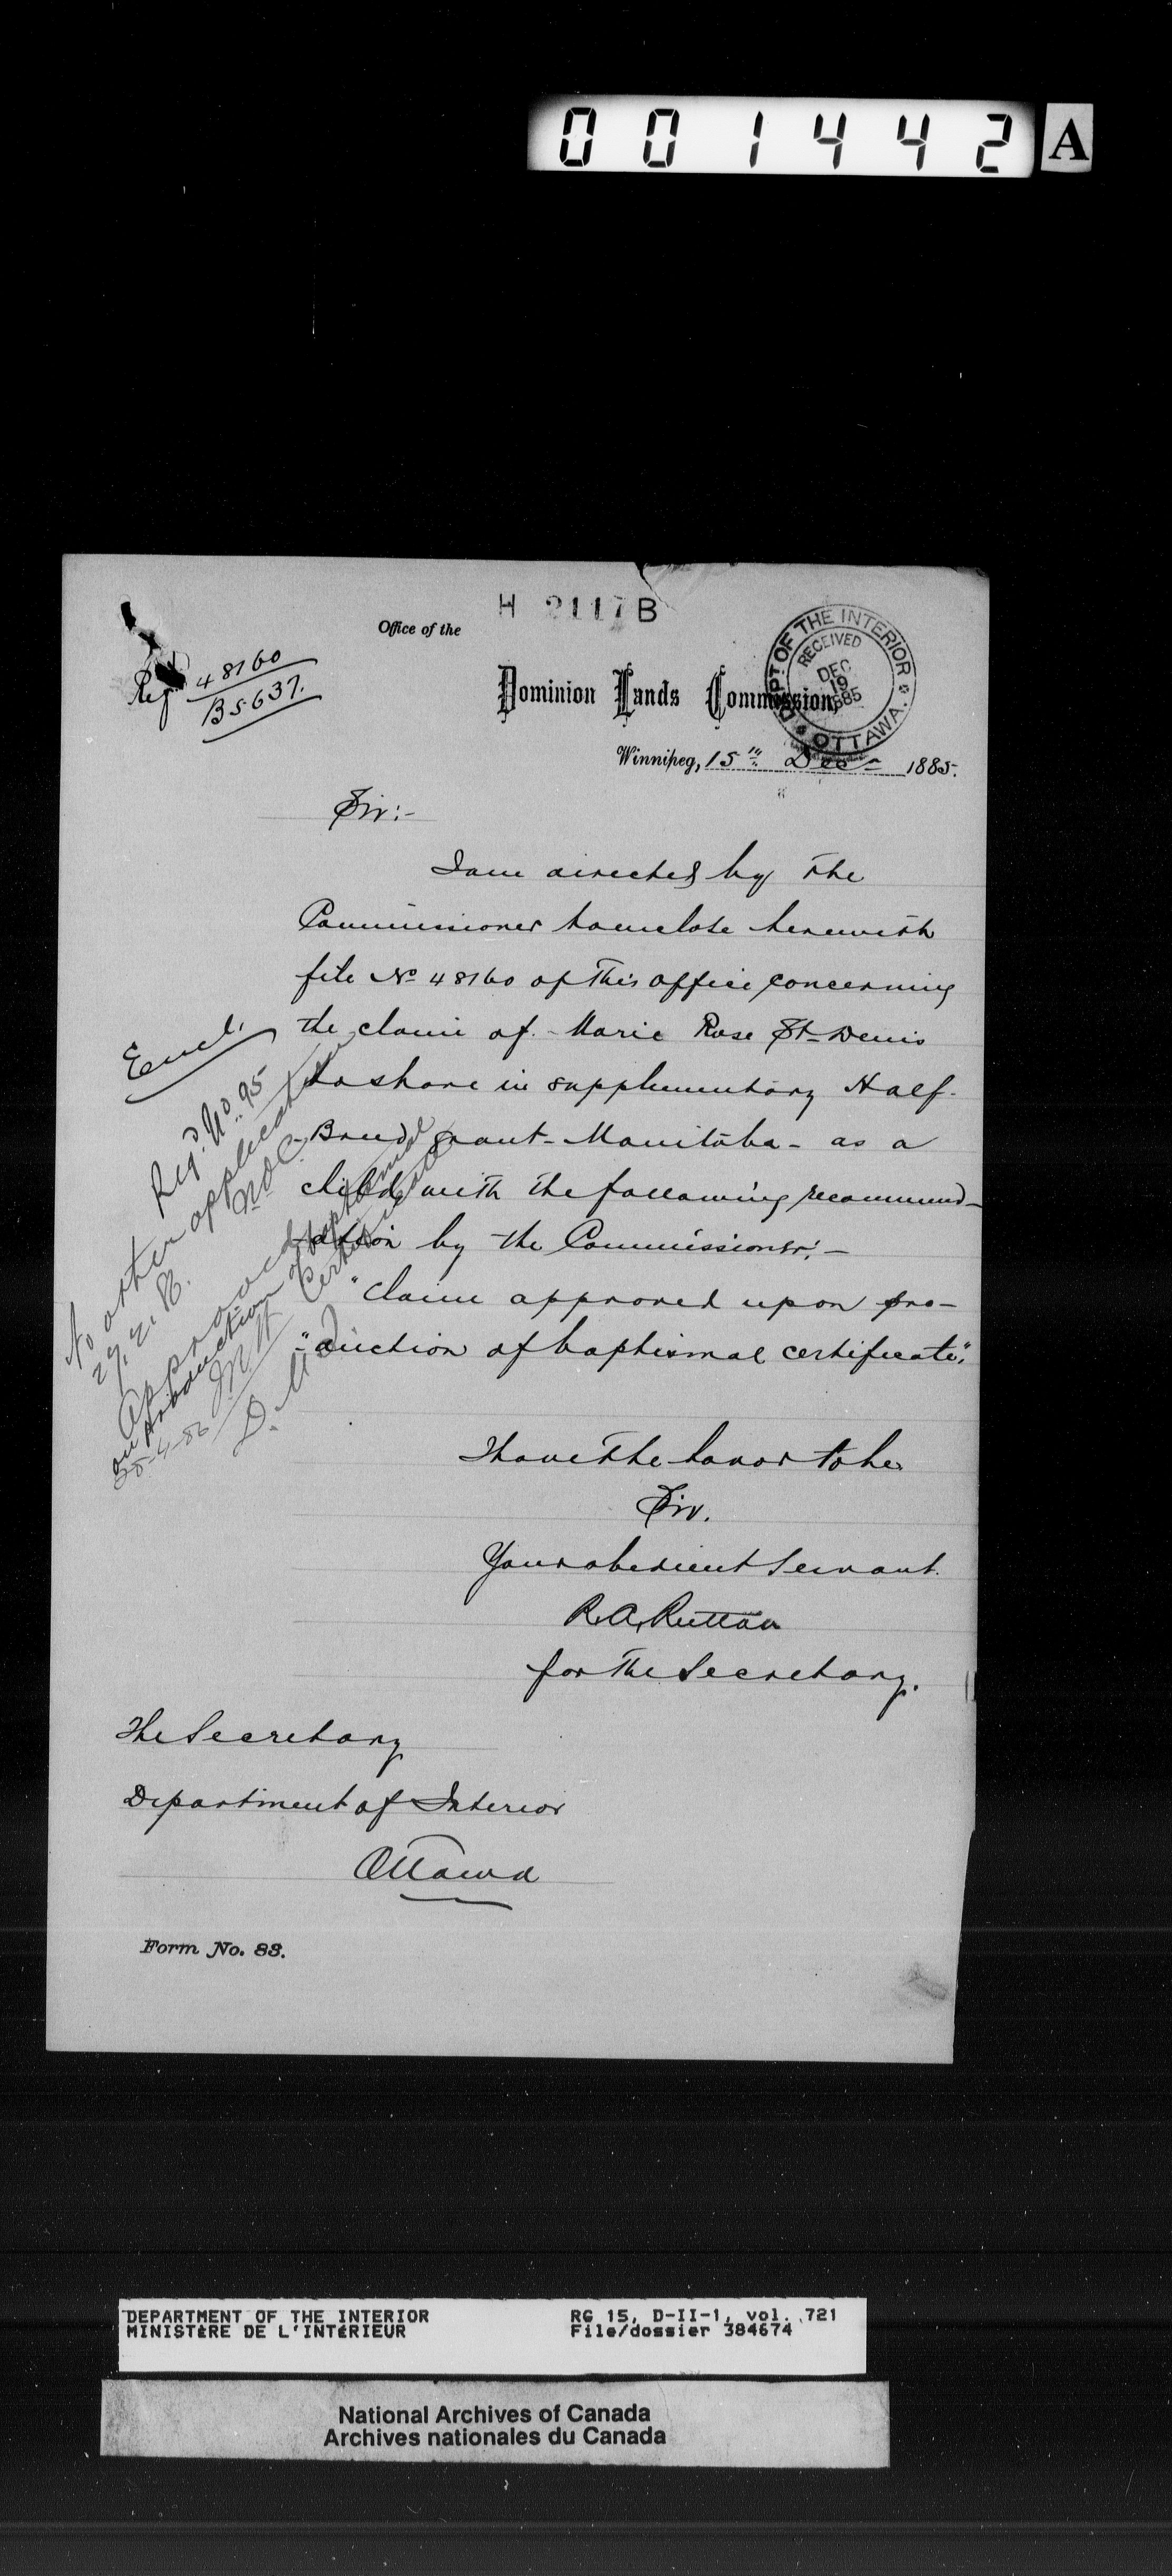 001442 A
H 2117 B
Office of the
Reg 48160
B5637.
Dominion Lands Commission,
DEPT OF THE INTERIOR
RECEIVED
DEC
19
1885
OTTAWA.
Winnipeg, 15th Decr 1885.
Sir:-
I am directed by the
Commissioner to enclose herewith
file No 48160 of this office concerning
the claim of Marie Rose St-Denis
to share in supplementary Half-
Breed grant - Manitoba - as a
child with the following recommend-
ation by the Commissioner:-
"Claim approved upon pro-
"duction of baptismal certificate".
Encl.
Reg'd No. 95
No other application
27.2.86.
Approved
on production of baptismal
certificate
I have the honor to be
Sir.
Your obedient Servant.
R. A. Ruttan
for the Secretary.
The Secretary
Department of Interior
Ottawa
Form No. 83.
DEPARTMENT OF THE INTERIOR RG 15, D-II-1, vol. 721
MINISTÈRE DE L'INTÉRIEUR File/dossier 384674
National Archives of Canada
Archives nationales du Canada